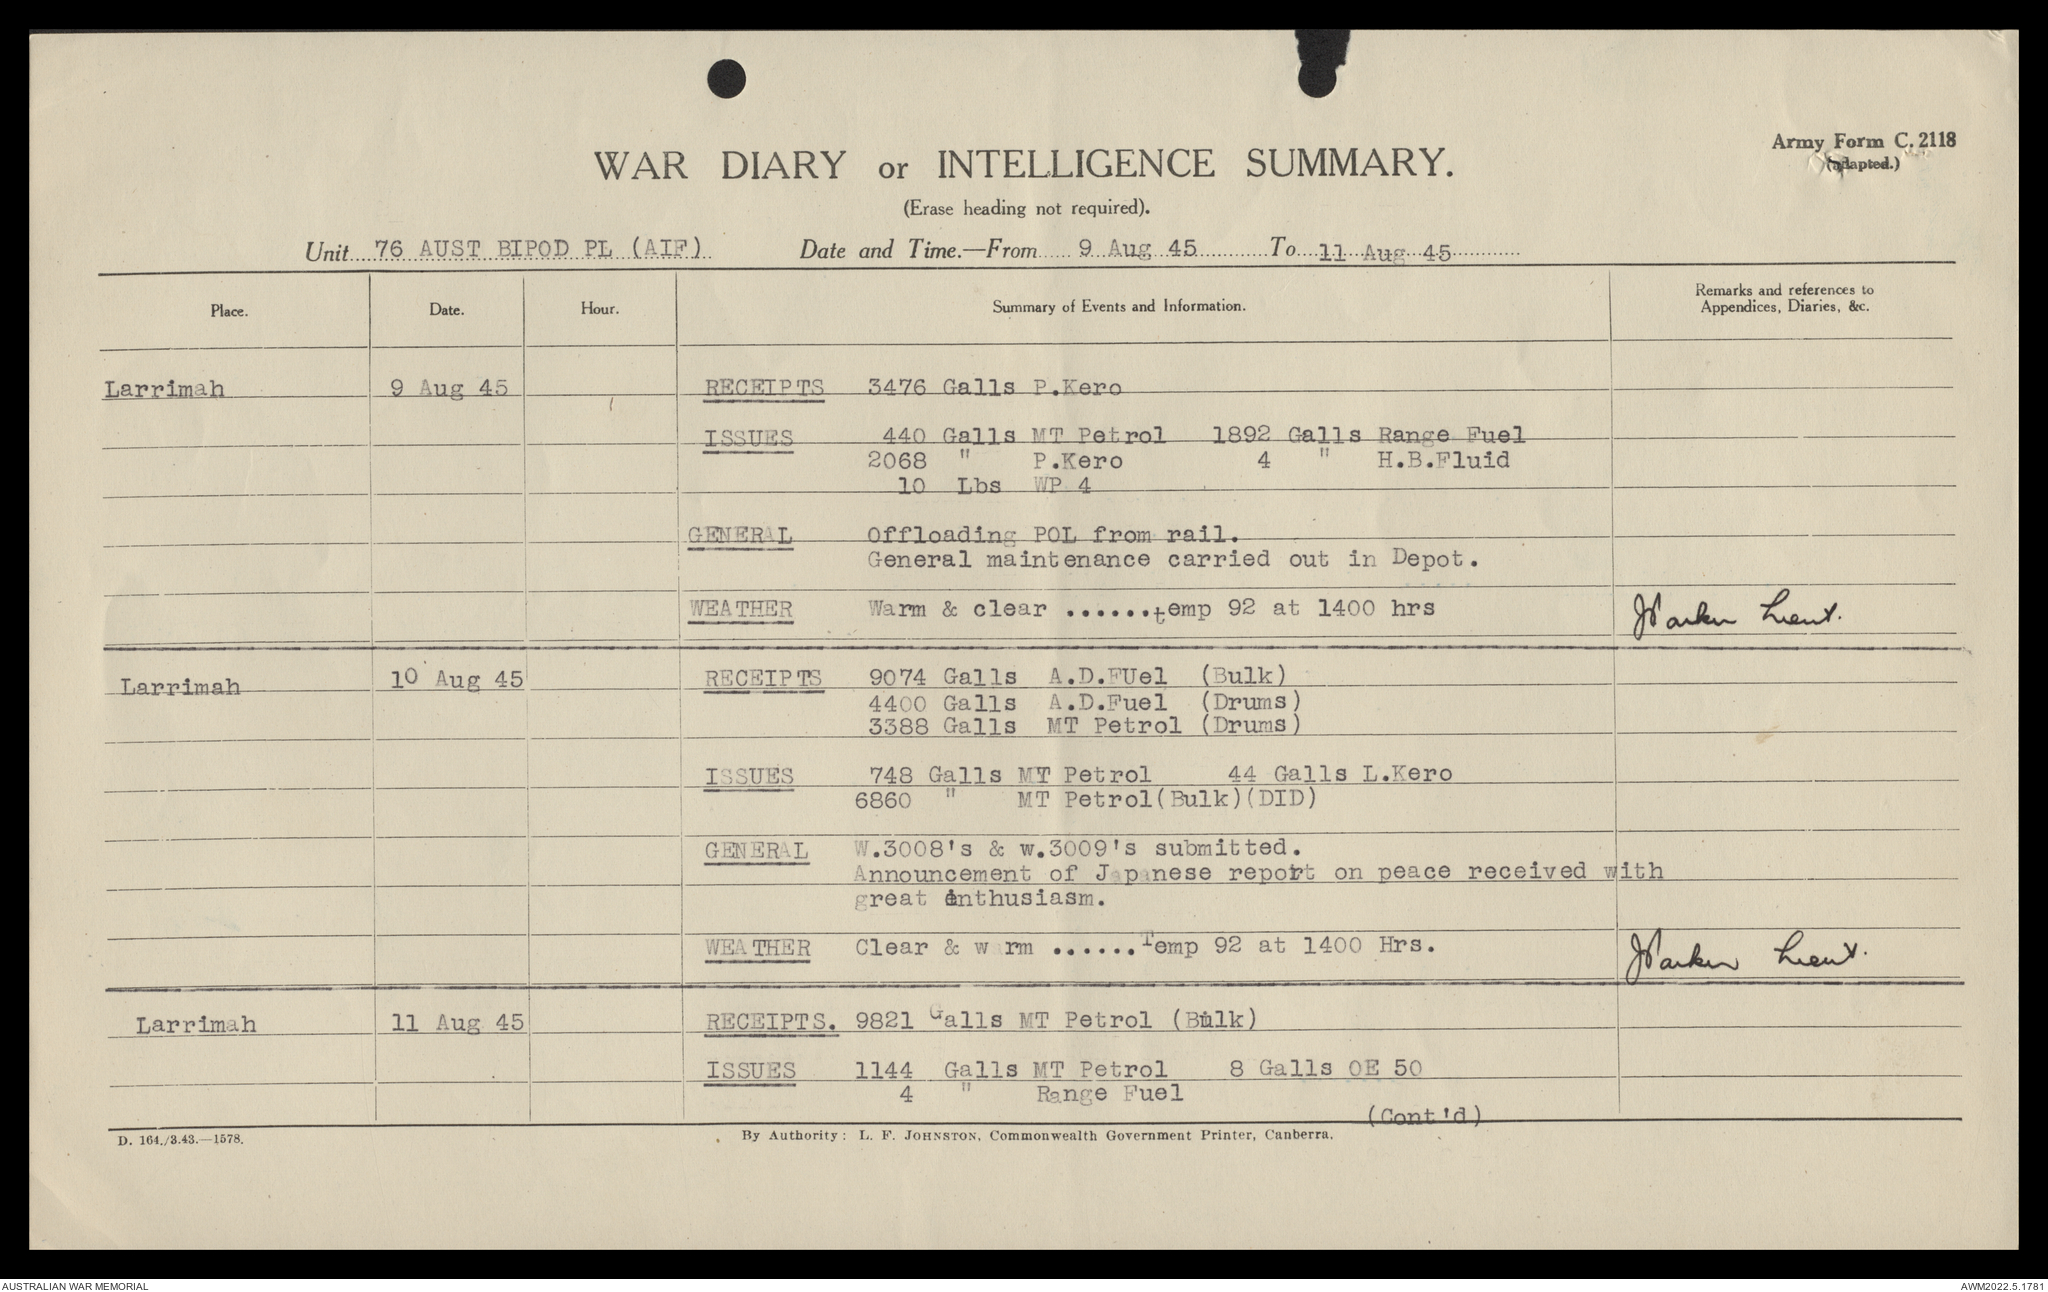 Army Form C. 2118
(adapted.)
WAR DIARY or INTELLIGENCE SUMMARY.
(Erase heading not required).
Unit 76 AUST BIPOD PL (AIF) Date and Time.—From 9 Aug 45 To 11 Aug 45
Place. Date. Hour. Summary of Events and Information. Remarks and references to
Appendices, Diaries, &c.
Larrimah 9 Aug 45 RECEIPTS 3476 Galls P.Kero
ISSUES 440 Galls MT Petrol 1892 Galls Range Fuel
2068 " P.Kero 4 " H.B.Fluid
10 Lbs WP 4
GENERAL Offloading POL from rail.
General maintenance carried out in Depot.
WEATHER Warm & clear ......temp 92 at 1400 hrs JParker Lieut.
Larrimah 10 Aug 45 RECEIPTS 9074 Galls A.D.FUel (Bulk)
4400 Galls A.D.Fuel (Drums)
3388 Galls MT Petrol (Drums)
ISSUES 748 Galls MT Petrol 44 Galls L.Kero
6860 " MT Petrol(Bulk)(DID)
GENERAL W.3008's & w.3009's submitted.
Announcement of Japanese report on peace received with
great enthusiasm.
WEATHER Clear & warm ......Temp 92 at 1400 Hrs. JParker Lieut.
Larrimah 11 Aug 45 RECEIPTS. 9821 Galls MT Petrol (Bulk)
ISSUES 1144 Galls MT Petrol 8 Galls OE 50
4 " Range Fuel
(Cont'd)
D. 164./3.43.—1578. By Authority: L. F. JOHNSTON, Commonwealth Government Printer, Canberra.
AUSTRALIAN WAR MEMORIAL AWM2022.5.1781